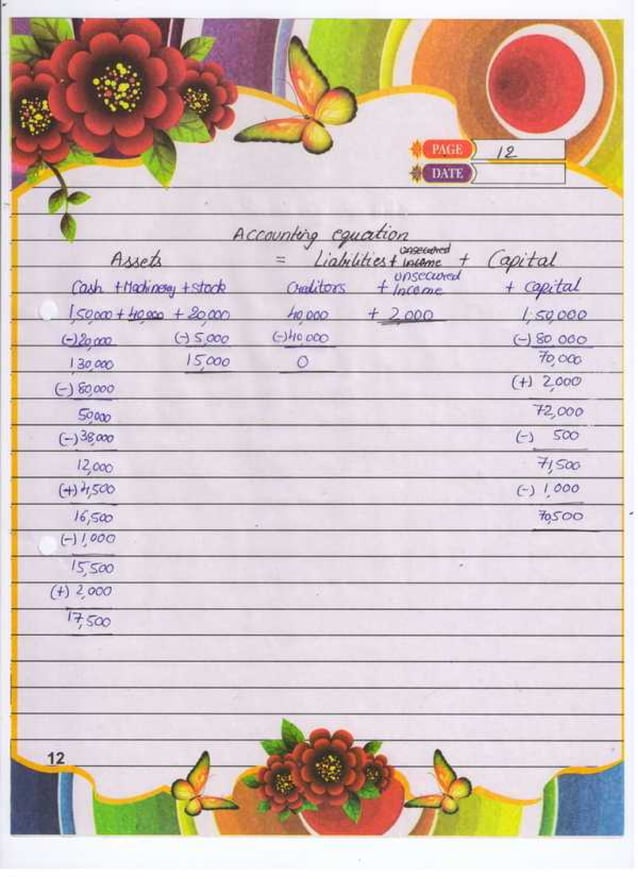 PAGE 12
DATE
Accounting equation
unsecured
Assets = Liabilities + income + Capital
unsecured
Cash + Machinery + stock Creditors + Income + Capital
1,50,000 + 40,000 + 20,000 40,000 + 2,000 1,50,000
(-) 20,000 (-) 5,000 (-) 40,000 (-) 80 000
1,30,000 15,000 0 70,000
(-) 80,000 (+) 2,000
50,000 72,000
(-) 38,000 (-) 500
12,000 71,500
(+) 4,500 (-) 1,000
16,500 70,500
(-) 1,000
15,500
(+) 2,000
17,500
12